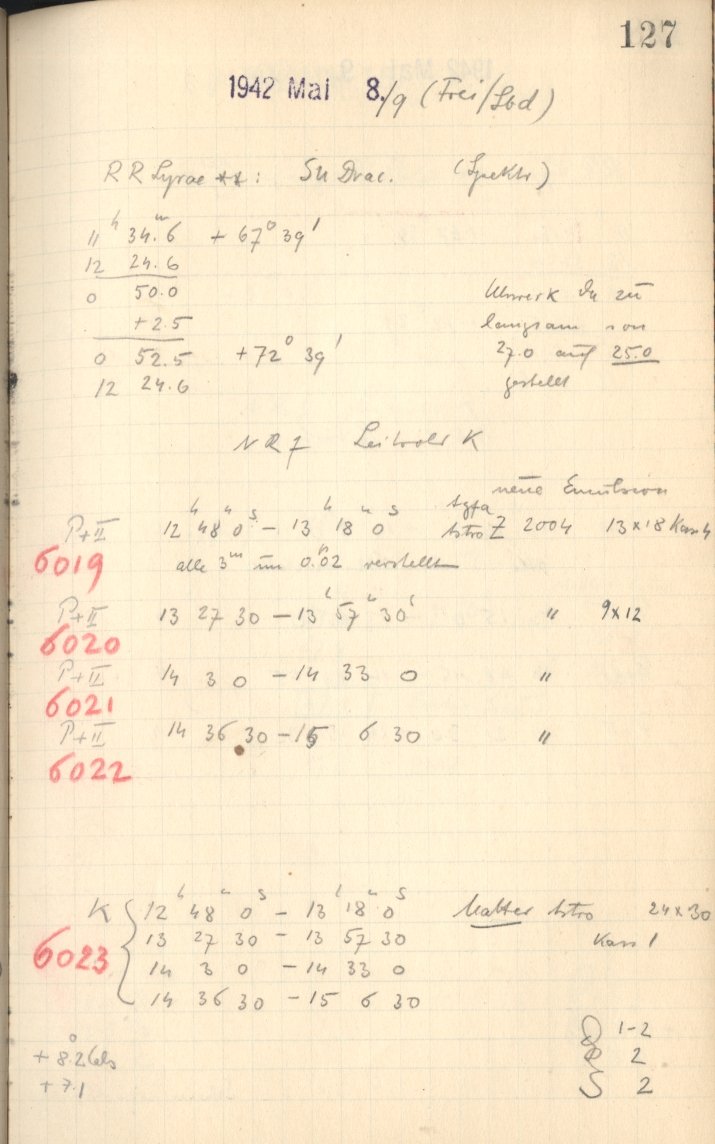 127
1942 Mai 8./9 (Frei/Lbd)
RR Lyrae **: SU Drac. (Spektr)
11ʰ 34.6ᵐ + 67° 39'
12 24.6
0 50.0
+2.5
0 52.5 +72° 39'
12 24.6
Uhrwerk da zu
langsam von
27.0 auf 25.0
gestellt
NR 7 K
neue Emulsion
P+II 12ʰ 48ᵐ 0ˢ – 13ʰ 18ᵐ 0ˢ Agfa Astro Z 2004 13×18 Kass 4
6019 alle 3ᵐ um 0.02 verstellt
P+II 13 27 30 – 13ʰ 57ᵐ 30ˢ " 9×12
6020
P+II 14 3 0 – 14 33 0 "
6021
P+II 14 36 30 – 15 6 30 "
6022
K 12ʰ 48ᵐ 0ˢ – 13ʰ 18ᵐ 0ˢ Matter Astro 24×30
13 27 30 – 13 57 30 Kass 1
6023
14 3 0 – 14 33 0
14 36 30 – 15 6 30
1-2
+8.2° Cels 2
+7.1 S 2